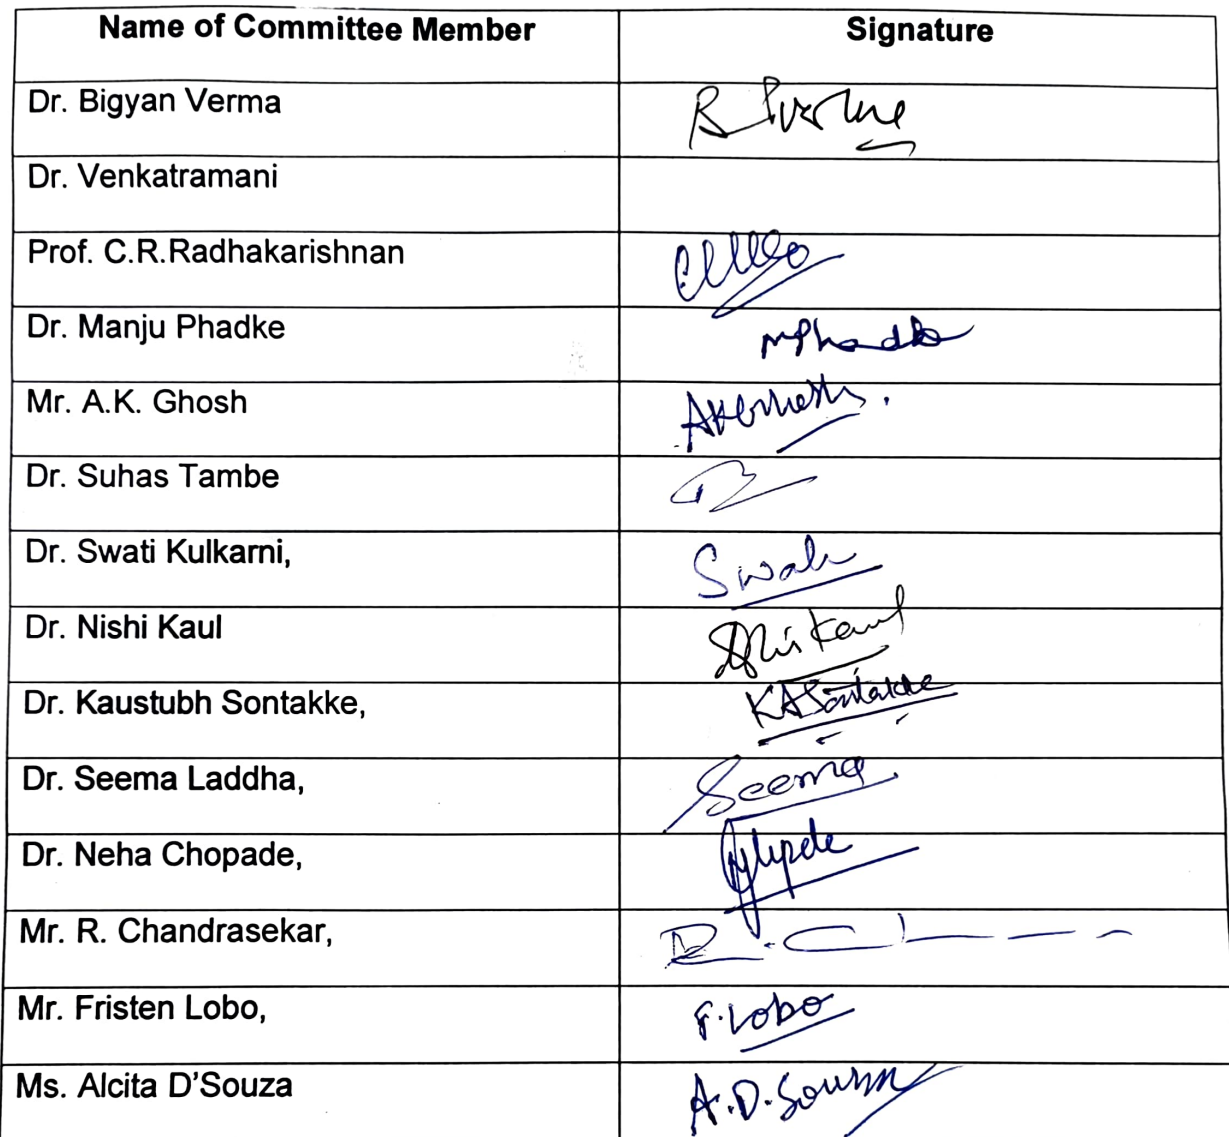 Name of Committee Member Signature
Dr. Bigyan Verma
Dr. Venkatramani
Prof. C.R.Radhakarishnan
Dr. Manju Phadke mPhadke
Mr. A.K. Ghosh AKGhosh.
Dr. Suhas Tambe
Dr. Swati Kulkarni, Swati
Dr. Nishi Kaul Kaul
Dr. Kaustubh Sontakke, KASontakke
Dr. Seema Laddha, Seema
Dr. Neha Chopade,
Mr. R. Chandrasekar,
Mr. Fristen Lobo, F.Lobo
Ms. Alcita D'Souza A.D.Souza